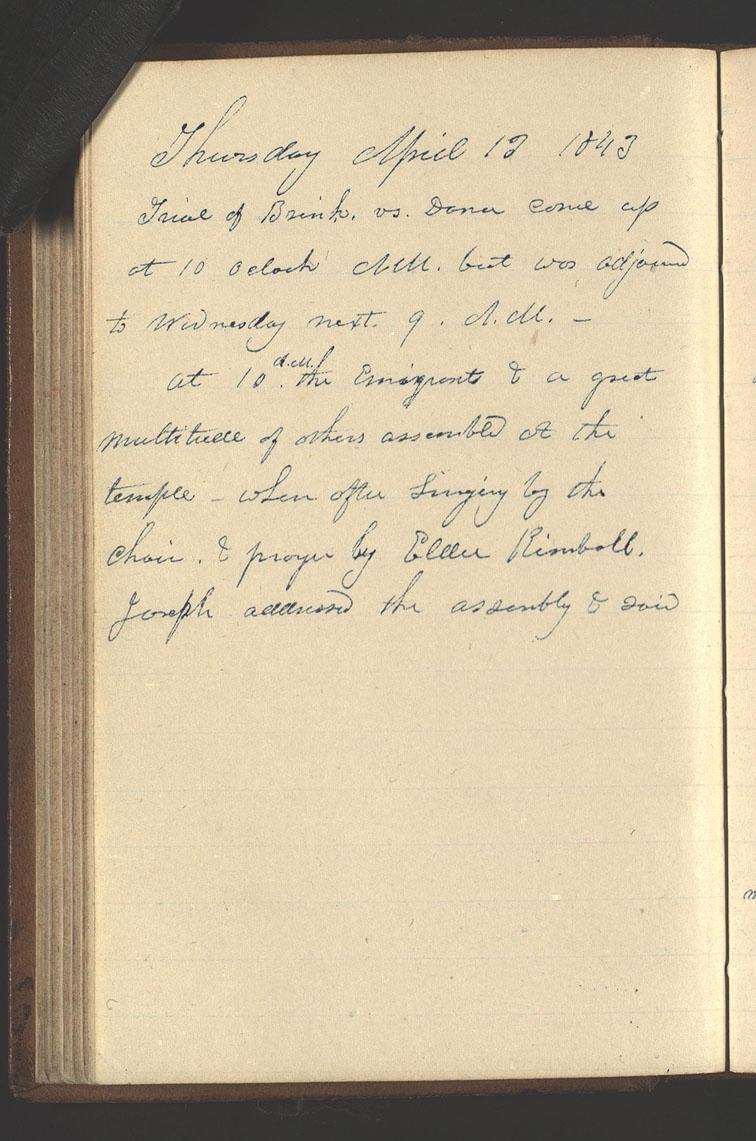 Thursday April 13 1843
Trial of Brink. vs. Dana come up
at 10 oclock A.M. but was adjourned
to Wednesday next. 9. A.M. —
at 10 A.M. the Emigrants & a great
multitude of others assembled at the
temple — when after singing by the
choir. & prayer by Elder Kimball.
Joseph addressed the assembly & said